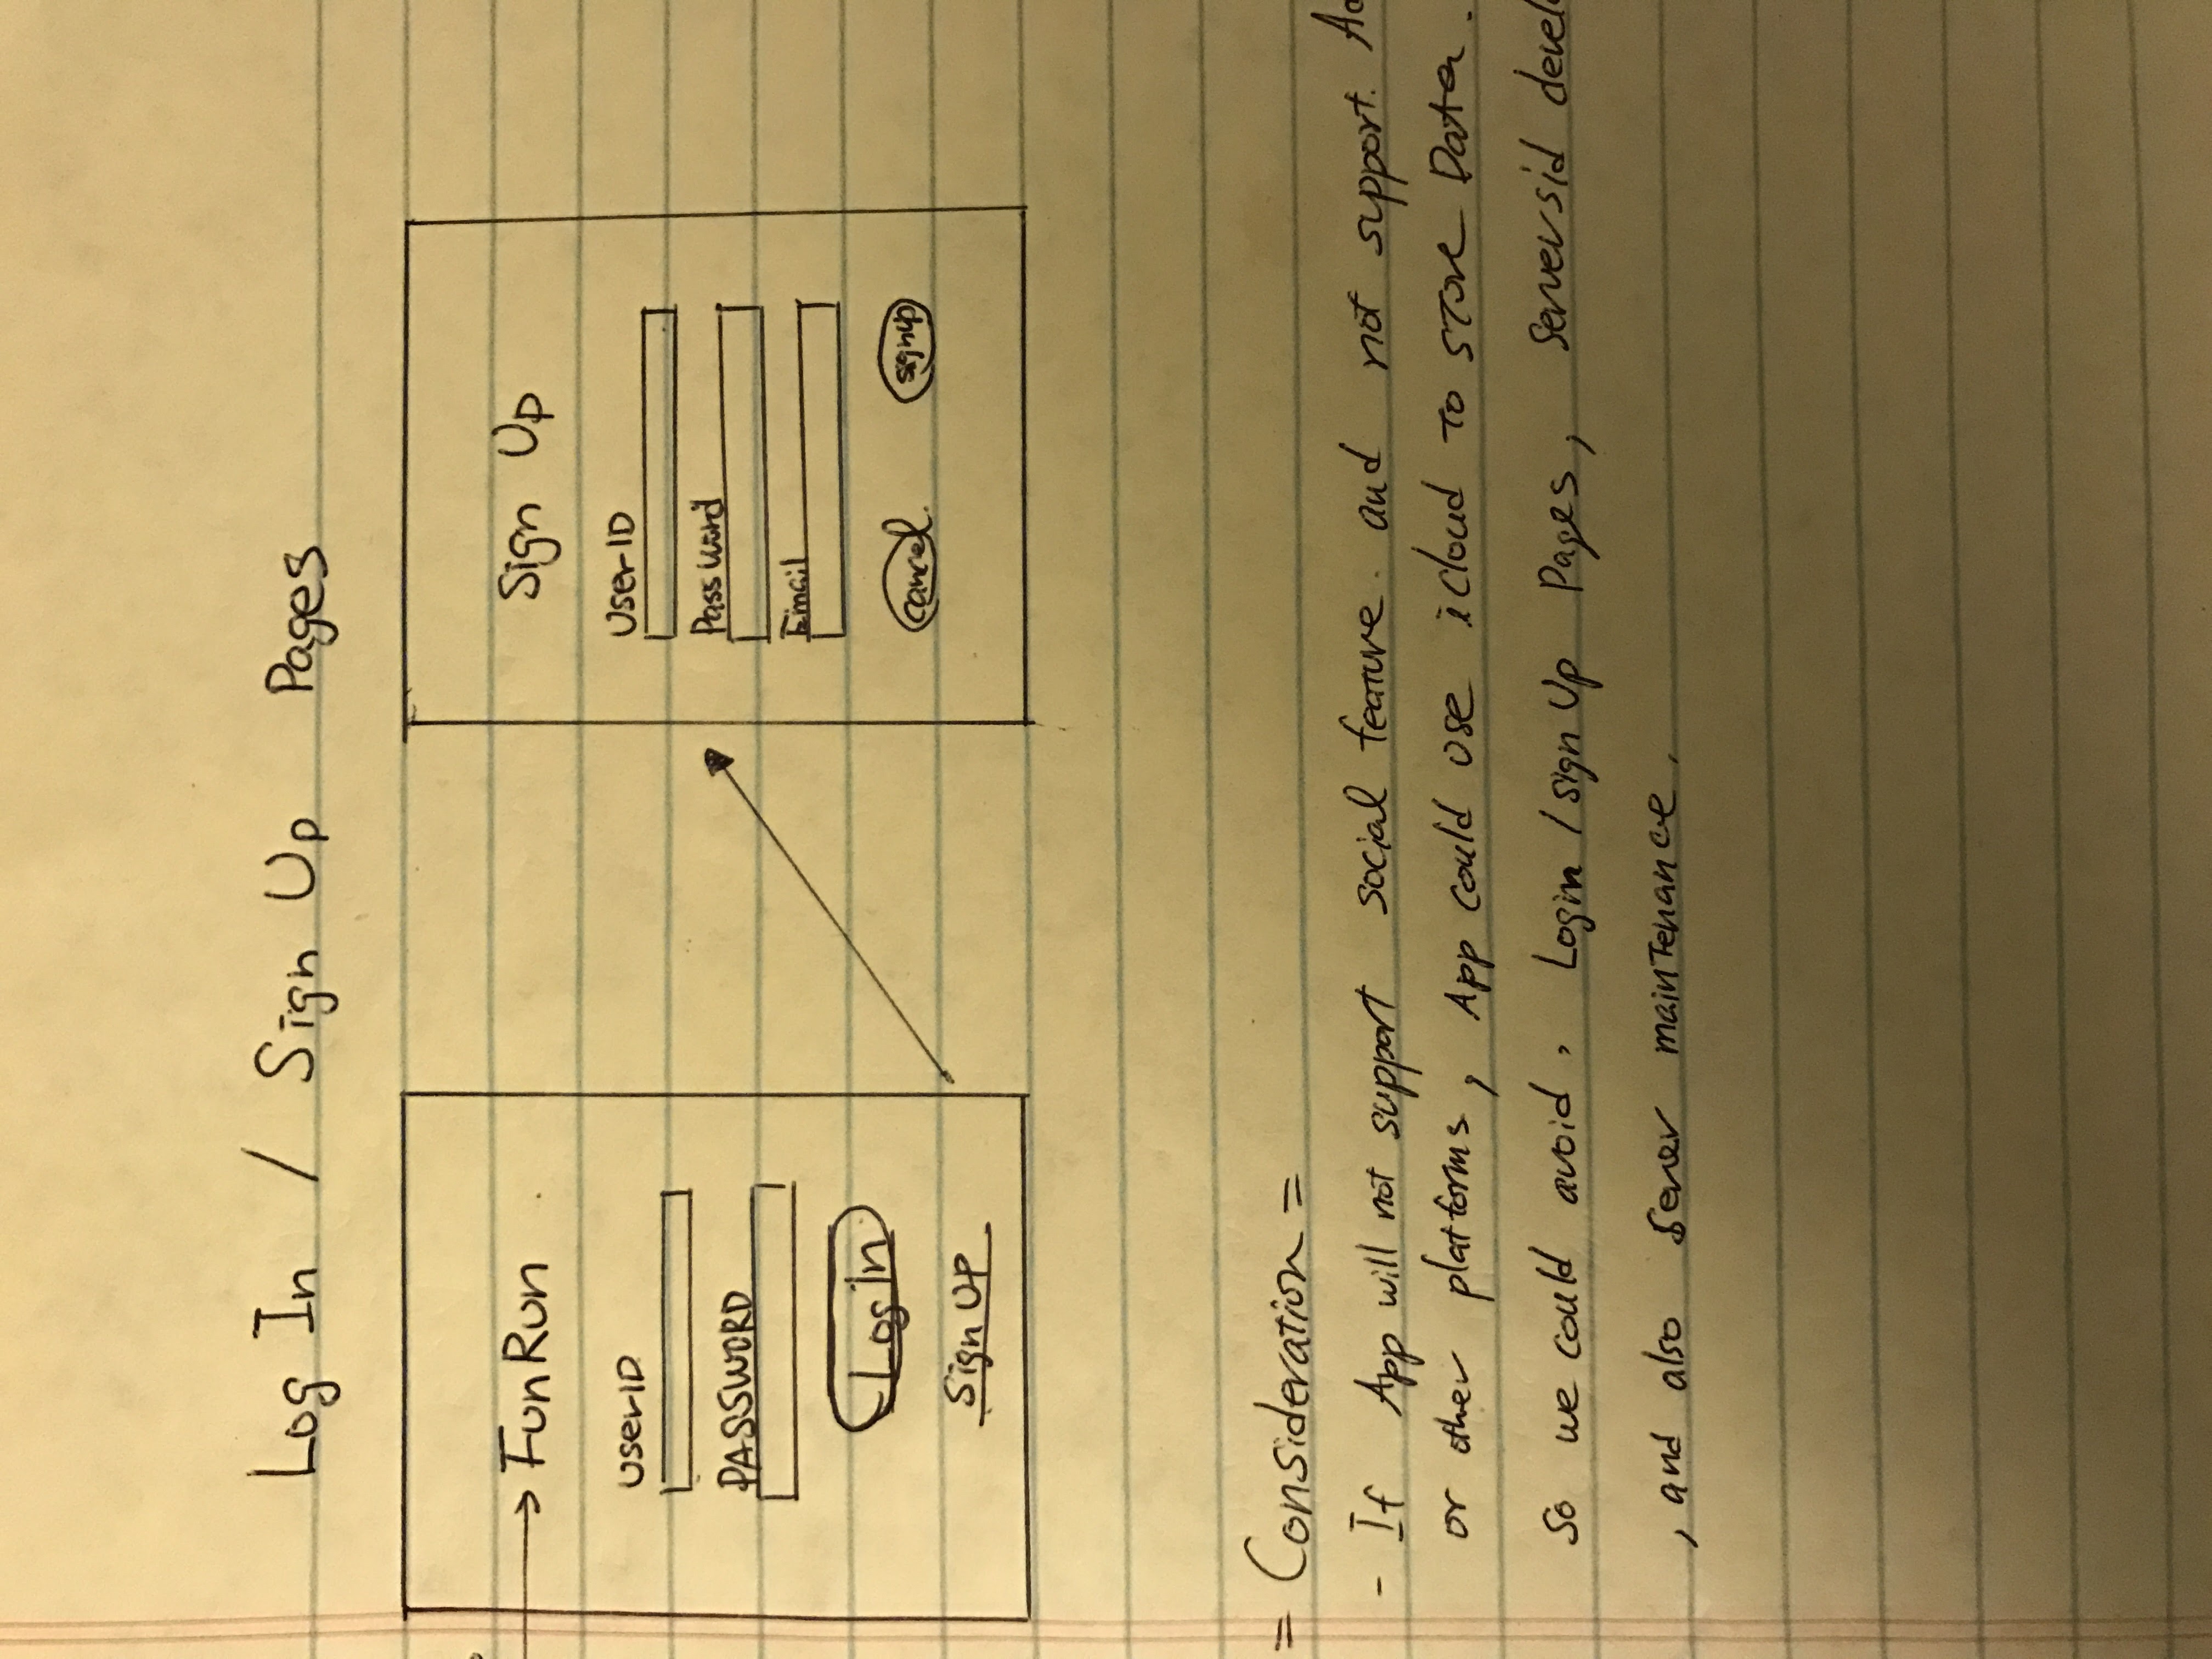 Log In / Sign Up Pages
FunRun
UserID
PASSWORD
Log In
Sign UP
Sign Up
UserID
PassWord
Email
cancel.
signup
= Consideration =
- If App will not support social feature. and not support.
or other platforms, App could use icloud to store Data.
So we could avoid, Login / sign Up Pages, Serversid
, and also Server maintenance.